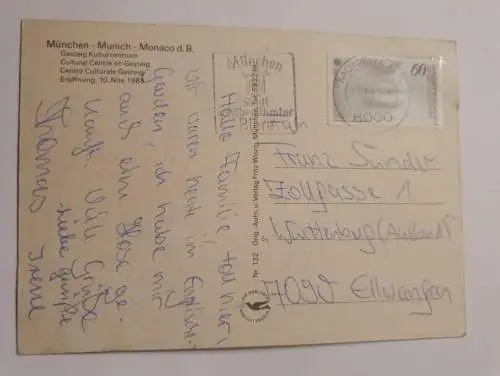 München - Munich - Monaco d. B.
Gasteig Kulturzentrum
Cultural Centre on Gasteig
Centro Culturale Gasteig
Eröffnung: 10. Nov. 1985
Hallo Familie
wir waren heute im Englischen
Garten, ich habe mir
auch eine Hose ge-
kauft. Viele Grüße
Thomas
liebe Grüße
Irene
Nr. 132 Orig.-Aufn. u. Verlag Fritz Witzig, München
München
Stadt
weltberühmter
Biere
60
8000
Franz Sünder
Zollgasse 1
Württenburg (Ausland)
7090 Ellwangen